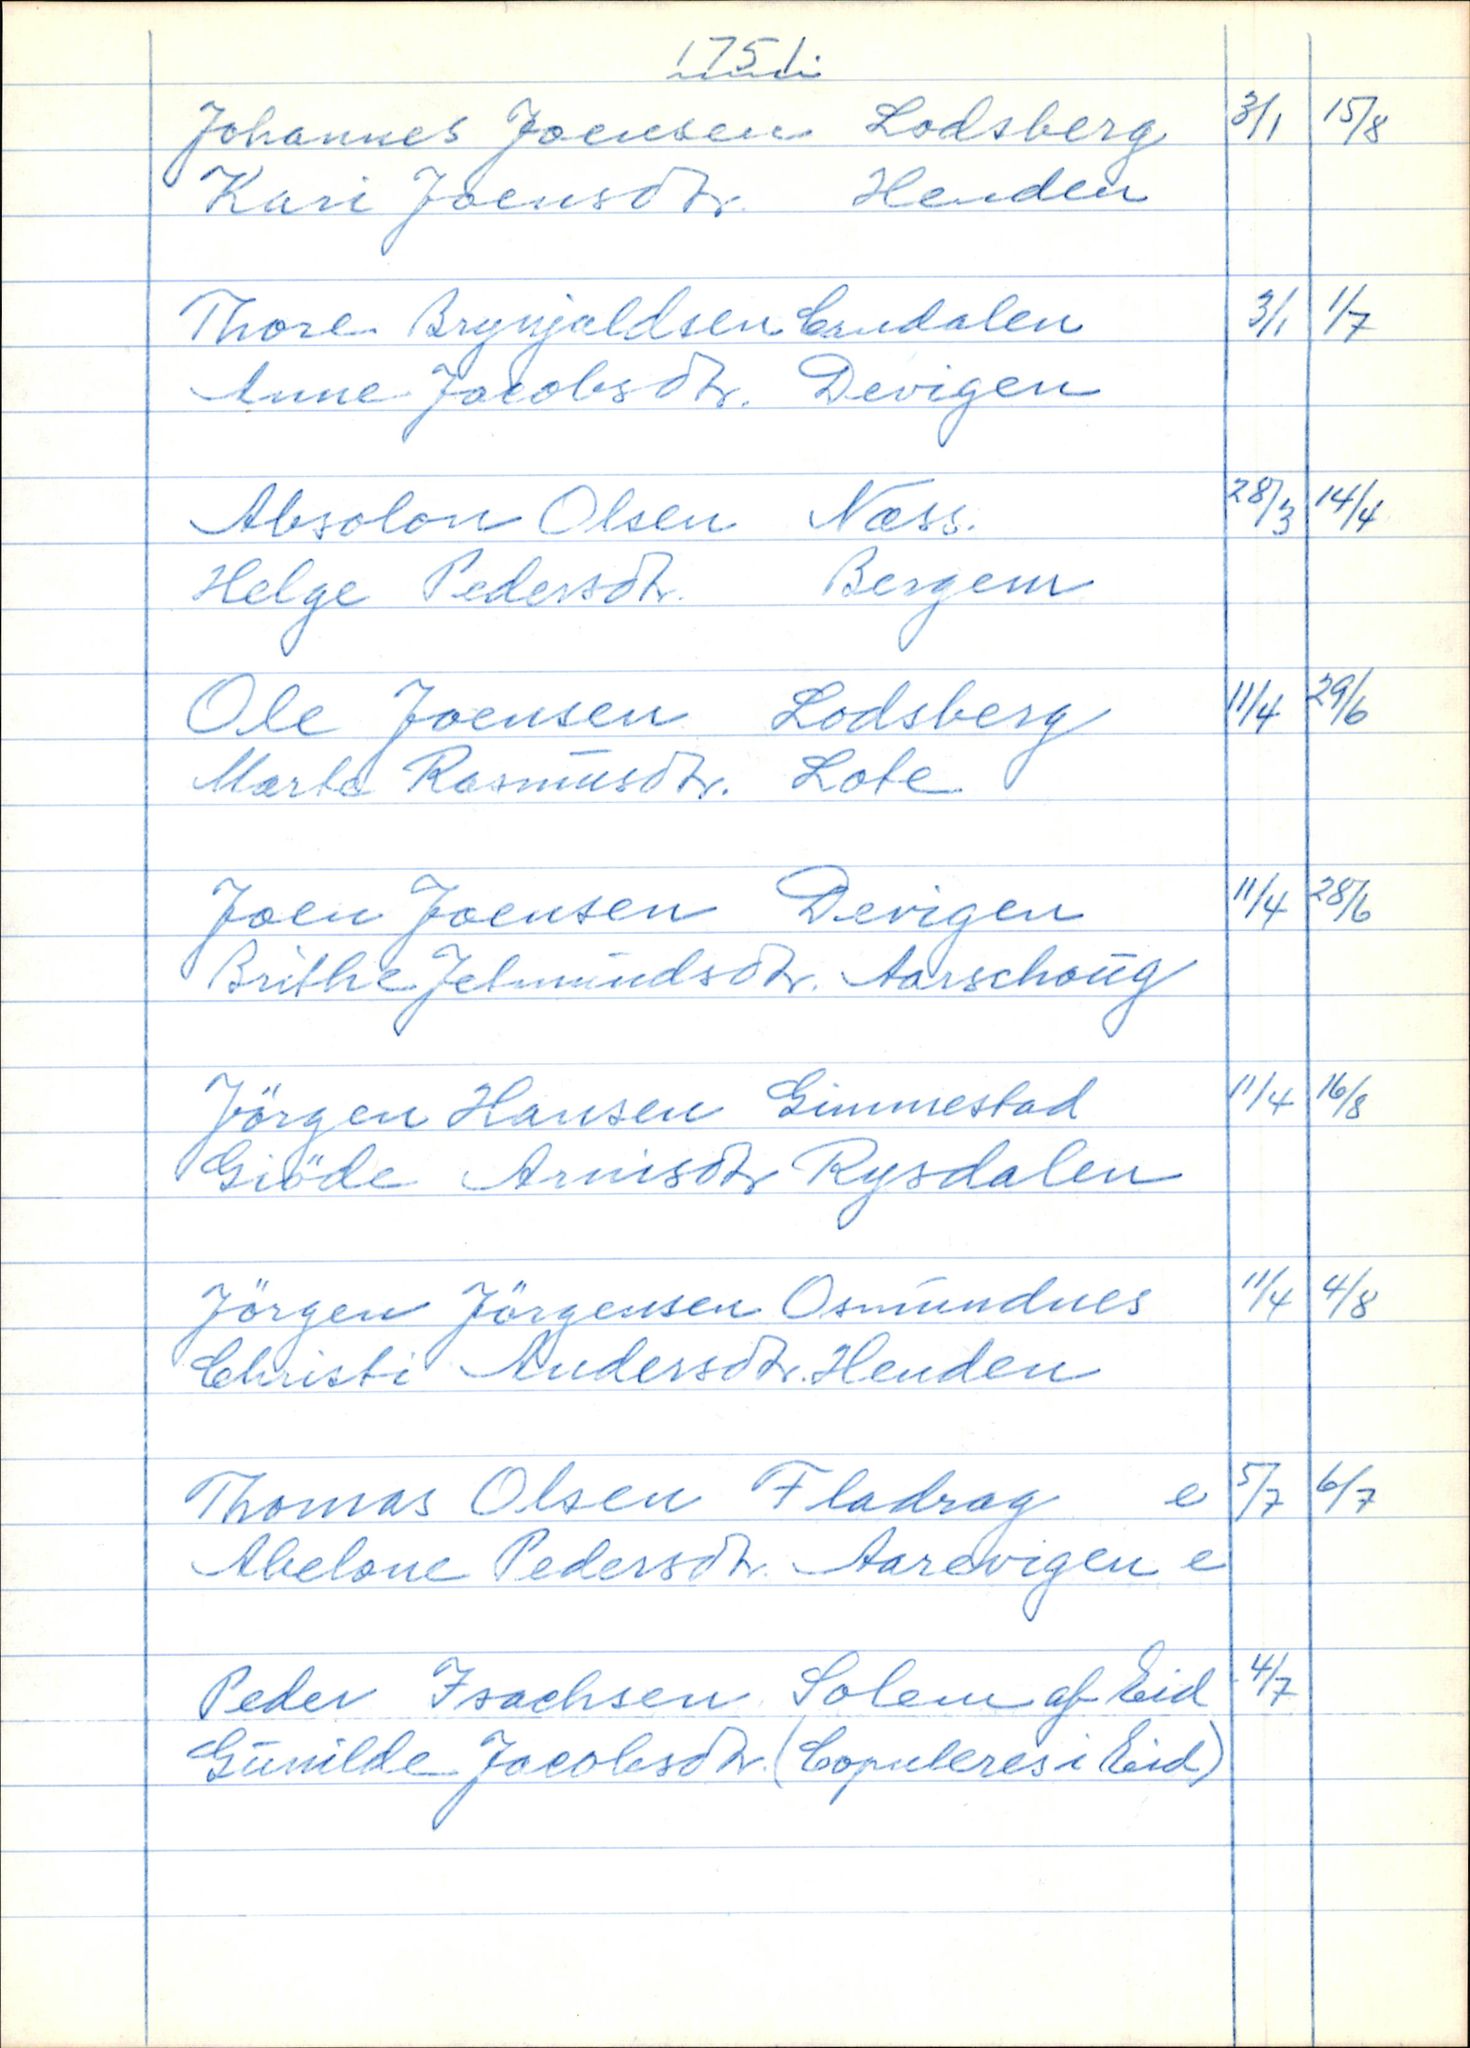 1751.
Johannes Joensen Lodsberg 3/1 15/8
Kari Joensdtr. Henden
Thore Brynjaldsen Endalen 3/1 1/7
Anne Jacobsdtr. Devigen
Absolon Olsen Næss. 28/3 14/4
Helge Pedersdtr. Bergem
Ole Joensen Lodsberg 11/4 29/6
Marta Rasmusdtr. Lote
Joen Joensen Devigen 11/4 28/6
Brithe Jetmundsdtr. Aarschoug
Jörgen Hansen Gimmestad 11/4 16/8
Giöde Arnisdtr Rysdalen
Jörgen Jörgensen Osmundnes 11/4 4/8
Christi Andersdtr. Henden
Thomas Olsen Fladrag e 5/7 6/7
Abelone Pedersdtr. Aarevigen e
Peder Isachsen Solem af Eid 4/7
Gunilde Jacobsdtr. (Copuleres i Eid)